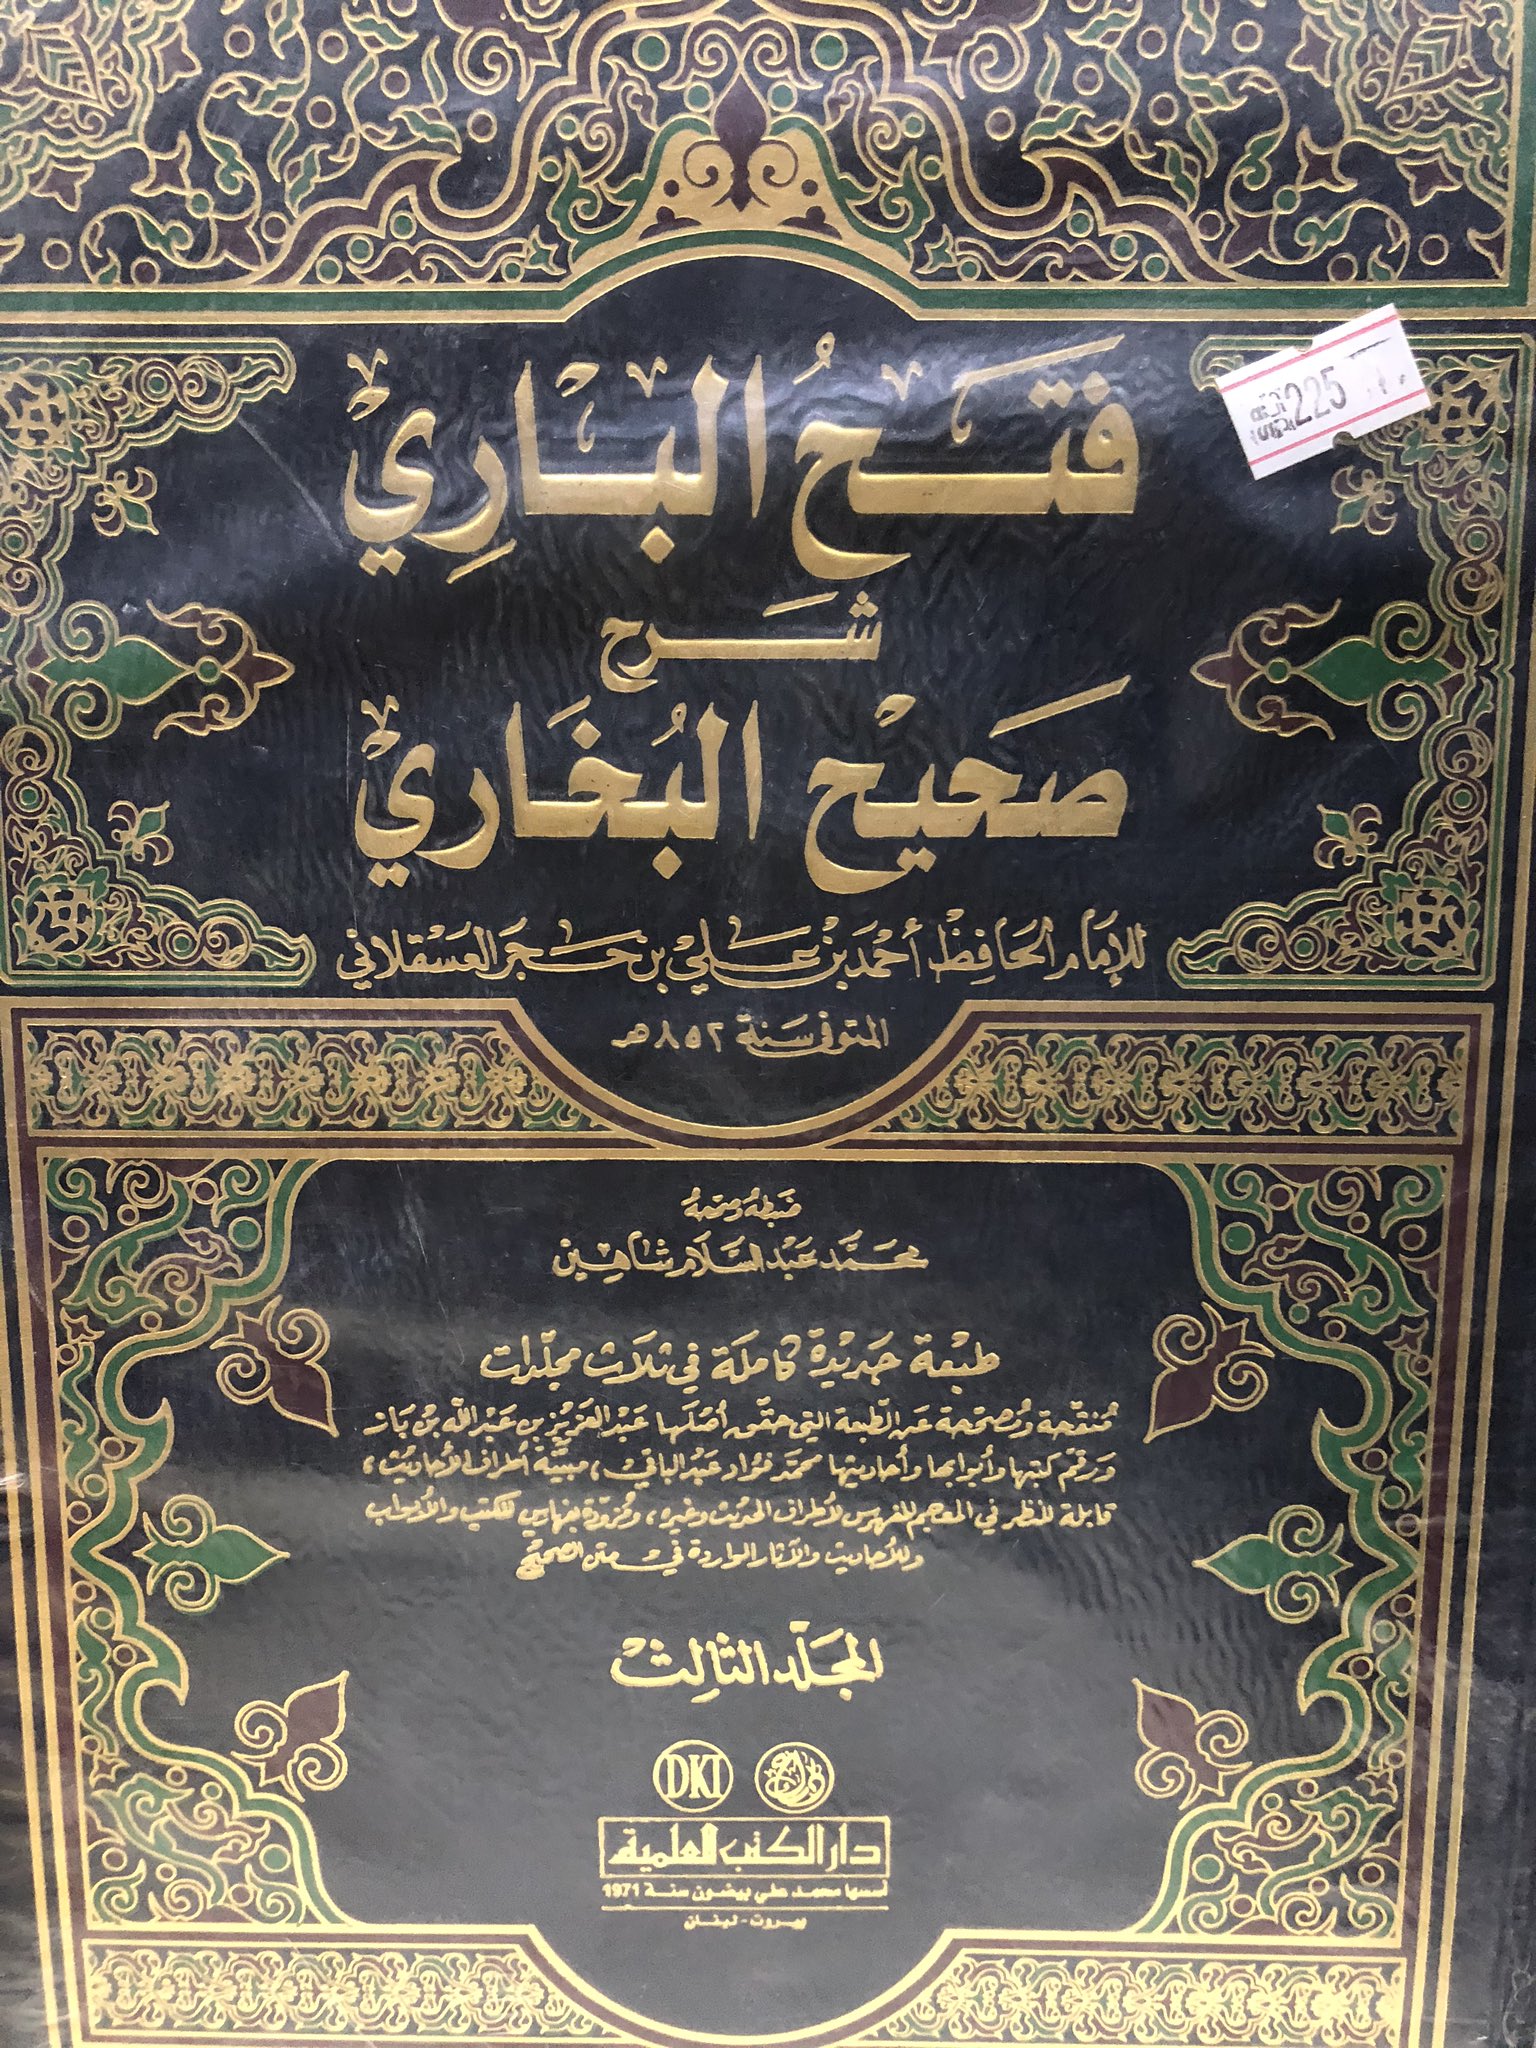 225
فتح الباري
شرح
صحيح البخاري
للإمام الحافظ أحمد بن علي بن حجر العسقلاني
المتوفى سنة ٨٥٢ هـ
ضبطه وصححه
محمد عبد السلام شاهين
طبعة جديدة كاملة في ثلاث مجلدات
منقحة ومصححة عن الطبعة التي حقق أصلها عبد العزيز بن عبد الله بن باز
ورقم كتبها وأبوابها وأحاديثها محمد فؤاد عبد الباقي، مبينة أطراف الأحاديث،
قابلة للنظر في المعجم المفهرس لأطراف الحديث وغيره، ومزودة بفهارس للكتب والأبواب
وللأحاديث والآثار الواردة في متن الصحيح
المجلد الثالث
DKI
دار الكتب العلمية
أسسها محمد علي بيضون سنة 1971
بيروت - لبنان